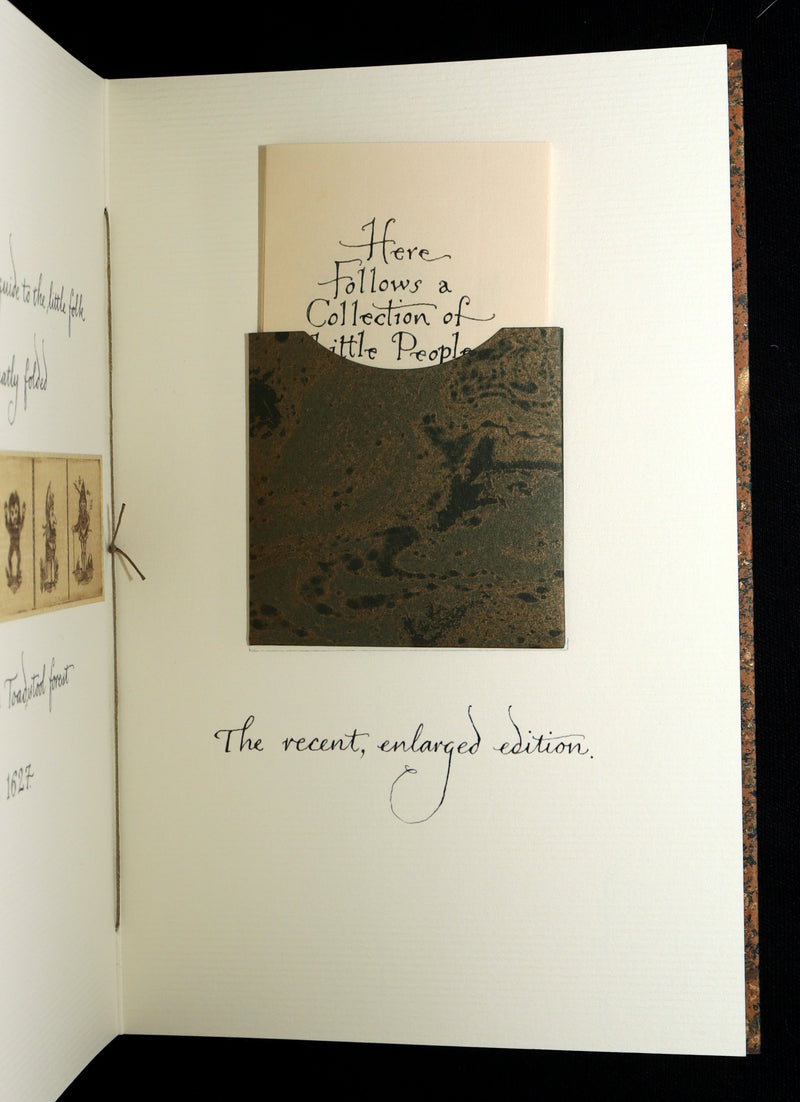 guide to the little folk
neatly folded
Toadstool forest
1627.
Here
Follows a
Collection of
Little People
The recent, enlarged edition.